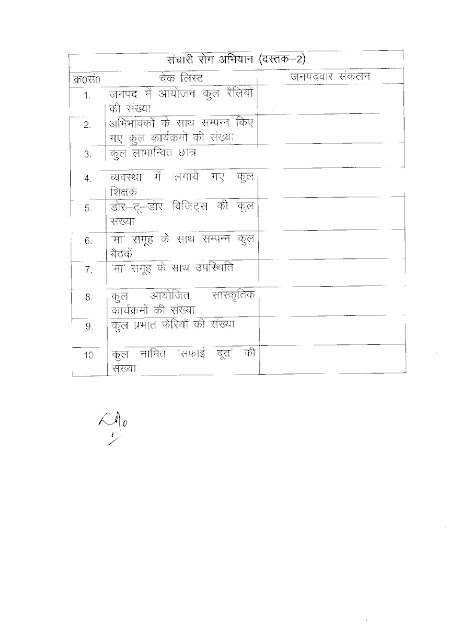 संचारी रोग अभियान (दस्तक–2)
क्र०सं० चेक लिस्ट जनपदवार संकलन
1. जनपद में आयोजन कुल रैलियों
की संख्या
2. अभिभावकों के साथ सम्पन्न किए
गए कुल कार्यक्रमों की संख्या
3. कुल लाभान्वित छात्र
4. व्यवस्था में लगाये गए कुल
शिक्षक
5. डोर–टू–डोर विजिट्स की कुल
संख्या
6. 'मा' समूह के साथ सम्पन्न कुल
बैठकें
7. 'मा' समूह के साथ उपस्थिति
8. कुल आयोजित सांस्कृतिक
कार्यक्रमों की संख्या
9. कुल प्रभात फेरियों की संख्या
10. कुल नामित 'सफाई दूत' की
संख्या